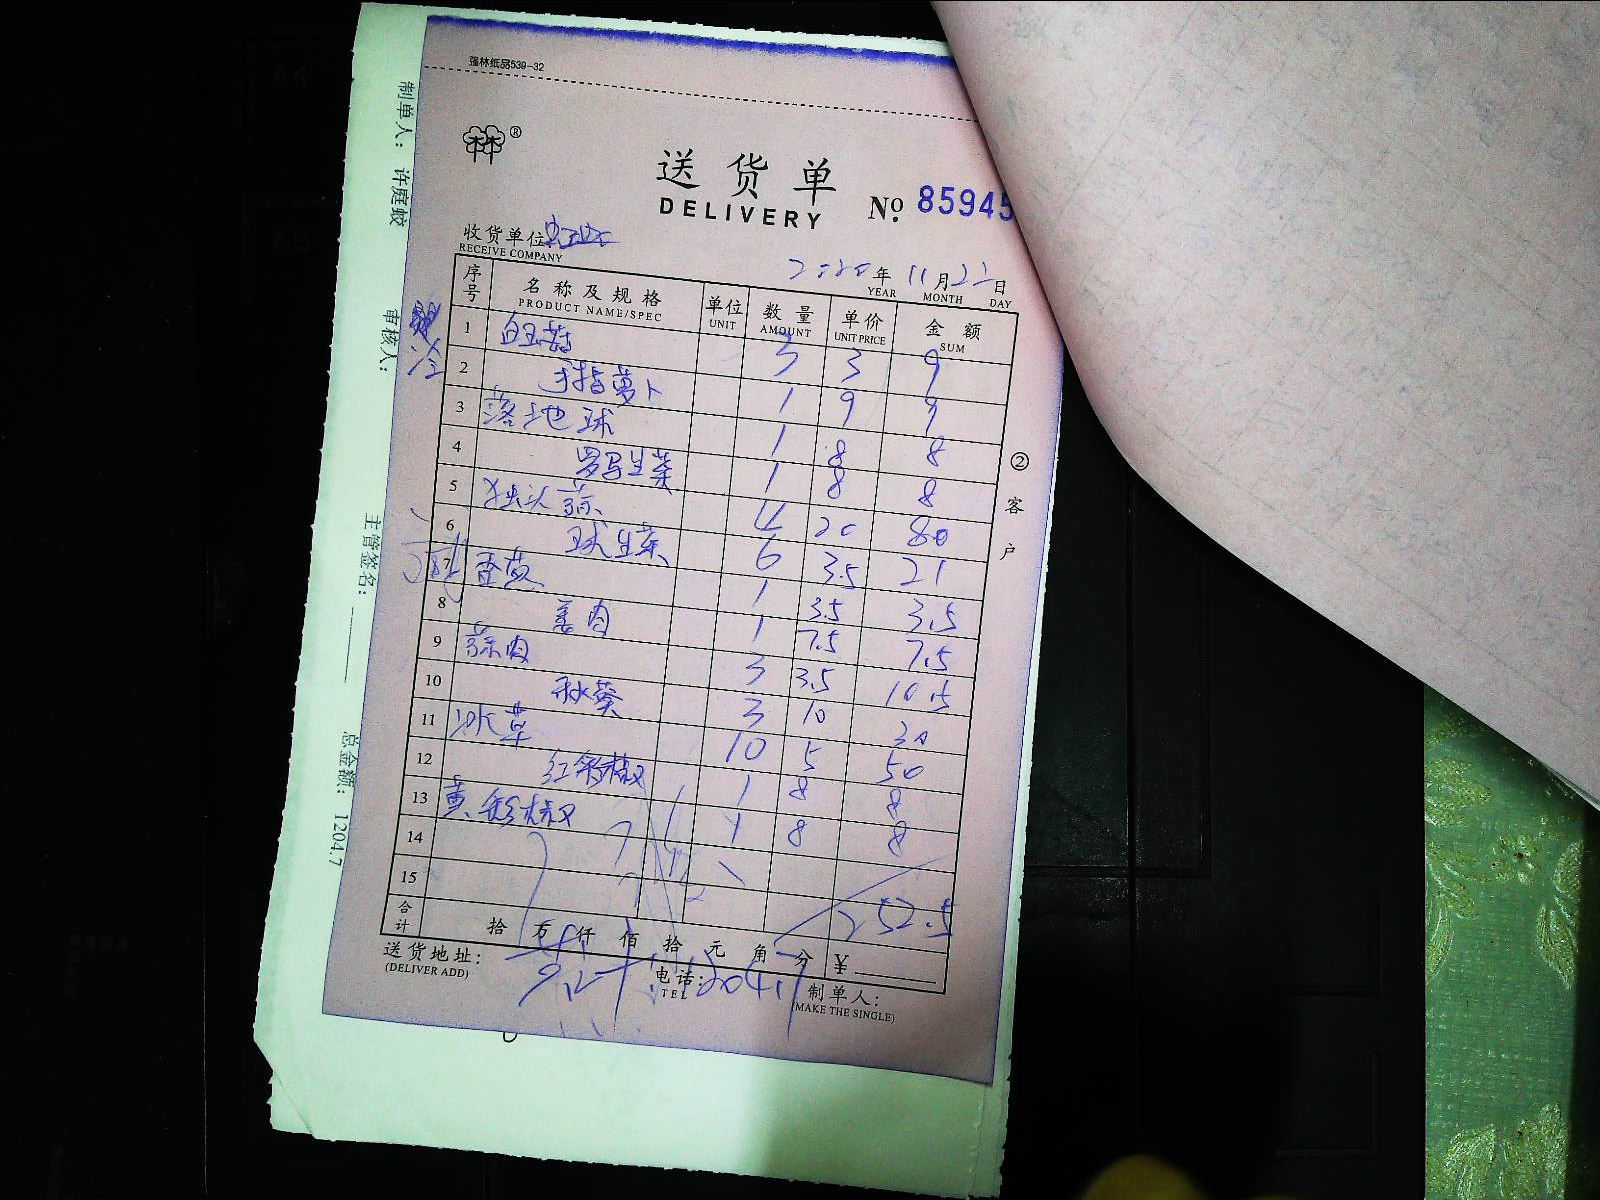 强林纸品539-32
®
送货单
DELIVERY
No. 85945
收货单位
RECEIVE COMPANY
2020年11月22日
YEAR MONTH DAY
序号 名称及规格 单位 数量 单价 金额
PRODUCT NAME/SPEC UNIT AMOUNT UNIT PRICE SUM
1 白玉菇 3 3 9
2 手指萝卜 1 9 9
3 落地球 1 8 8
4 罗马生菜 1 8 8
5 独头蒜 4 20 80
6 球生菜 6 3.5 21
7 香菜 1 3.5 3.5
8 姜肉 1 7.5 7.5
9 蒜肉 3 3.5 10.5
10 秋葵 3 10 30
11 冰草 10 5 50
12 红彩椒 1 8 8
13 黄彩椒 1 8 8
14
15
252.5
合计 拾 万 仟 佰 拾 元 角 分 ¥
送货地址:
(DELIVER ADD)
电话:
TEL
1204.7
制单人:
(MAKE THE SINGLE)
②客户
制单人: 许庭蛟
审核人:
主管签名:
总金额: 1204.7